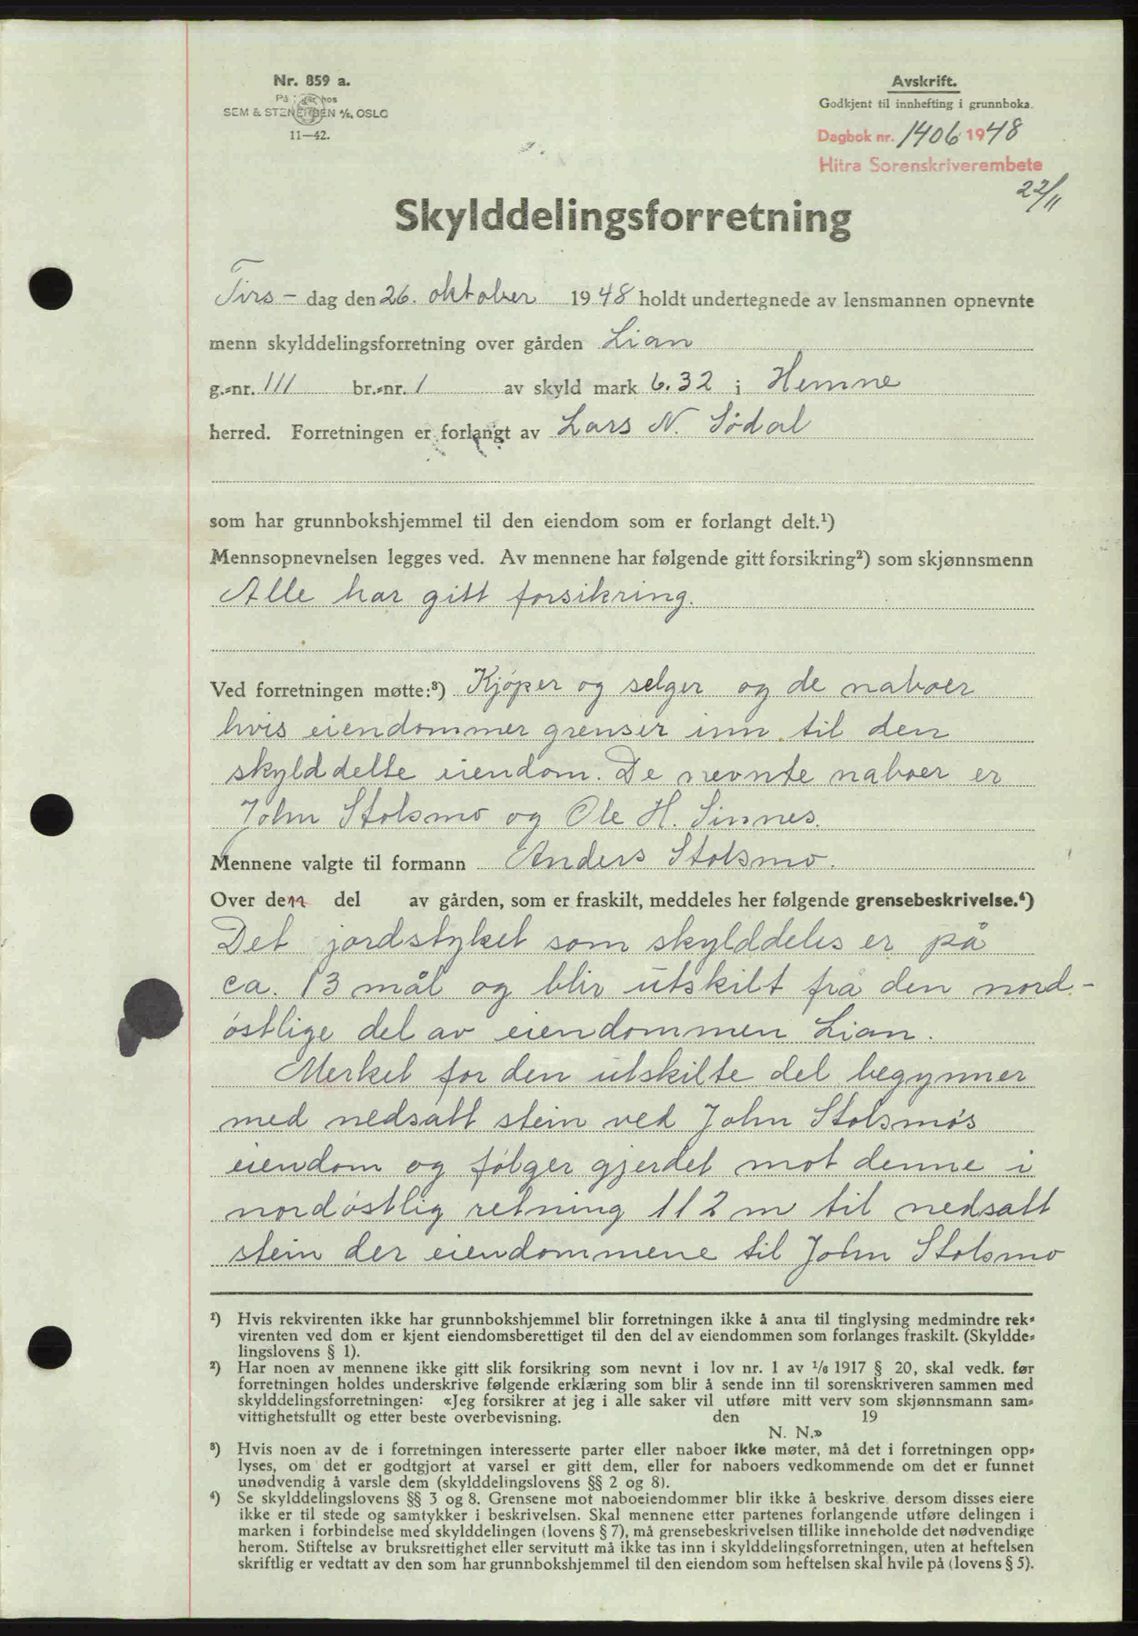 Nr. 859 a.
På lager hos
SEM & STENERSEN A/S, OSLO
11—42.
Avskrift.
Godkjent til innhefting i grunnboka.
Dagbok nr. 1406 1948
Hitra Sorenskriverembete
22/11
Skylddelingsforretning
Tirs- dag den 26. oktober 1948 holdt undertegnede av lensmannen opnevnte
menn skylddelingsforretning over gården Lian
g.-nr. 111 br.-nr. 1 av skyld mark 6.32 i Hemne
herred. Forretningen er forlangt av Lars N. Södal
som har grunnbokshjemmel til den eiendom som er forlangt delt.¹)
Mennsopnevnelsen legges ved. Av mennene har følgende gitt forsikring²) som skjønnsmenn
Alle har gitt forsikring.
Ved forretningen møtte:³) Kjøper og selger og de naboer
hvis eiendommer grenser inn til den
skylddelte eiendom. De nevnte naboer er
John Stolsmo og Ole H. Sinnes.
Mennene valgte til formann Anders Stolsmo.
Over den del av gården, som er fraskilt, meddeles her følgende grensebeskrivelse.⁴)
Det jordstyket som skylddeles er på
ca. 13 mål og blir utskilt frå den nord-
östlige del av eiendommen Lian.
Merket for den utskilte del begynner
med nedsatt stein ved John Stolsmo's
eiendom og følger gjerdet mot denne i
nordöstlig retning 112 m til nedsatt
stein der eiendommene til John Stolsmo
¹) Hvis rekvirenten ikke har grunnbokshjemmel blir forretningen ikke å anta til tinglysing medmindre rek-
virenten ved dom er kjent eiendomsberettiget til den del av eiendommen som forlanges fraskilt. (Skyldde-
lingslovens § 1).
²) Har noen av mennene ikke gitt slik forsikring som nevnt i lov nr. 1 av ¹/₆ 1917 § 20, skal vedk. før
forretningen holdes underskrive følgende erklæring som blir å sende inn til sorenskriveren sammen med
skylddelingsforretningen: «Jeg forsikrer at jeg i alle saker vil utføre mitt verv som skjønnsmann sam-
vittighetsfullt og etter beste overbevisning. den 19
N. N.»
³) Hvis noen av de i forretningen interesserte parter eller naboer ikke møter, må det i forretningen opp-
lyses, om det er godtgjort at varsel er gitt dem, eller for naboers vedkommende om det er funnet
unødvendig å varsle dem (skylddelingslovens §§ 2 og 8).
⁴) Se skylddelingslovens §§ 3 og 8. Grensene mot naboeiendommer blir ikke å beskrive, dersom disses eiere
ikke er til stede og samtykker i beskrivelsen. Skal mennene etter partenes forlangende utføre delingen i
marken i forbindelse med skylddelingen (lovens § 7), må grensebeskrivelsen tillike inneholde det nødvendige
herom. Stiftelse av bruksrettighet eller servitutt må ikke tas inn i skylddelingsforretningen, uten at heftelsen
skriftlig er vedtatt av den som har grunnbokshjemmel til den eiendom som heftelsen skal hvile på (lovens § 5).